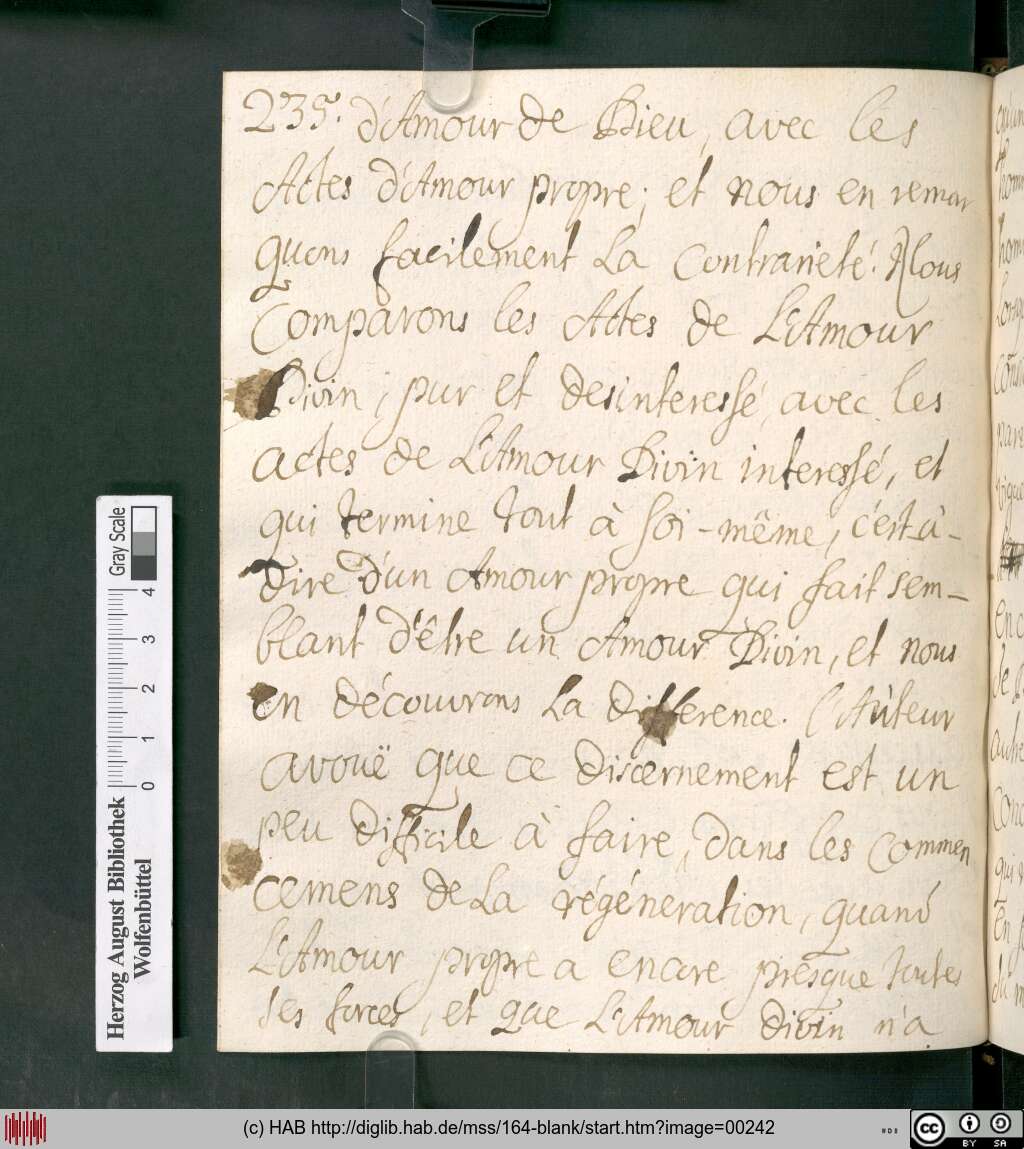 235. d'Amour de Dieu, avec les
Actes d'Amour propre; et nous en remar
quons facilement La Contrarieté. Nous
Comparons les Actes de L'Amour
Divin; pur et desinteressé, avec les
actes de L'Amour Divin interessé, et
qui termine tout à soi-même, c'est-à-
dire d'un Amour propre qui fait sem-
blant d'être un Amour Divin, et nous
en découvrons La difference. l'Aûteur
avouë que ce discernement est un
peu difficile à faire, dans les Commen
cemens de La régéneration, quand
L'Amour propre a encore presque toutes
ses forces, et que L'Amour divin n'a
Gray Scale
4
3
2
1
0
Herzog August Bibliothek
Wolfenbüttel
(c) HAB http://diglib.hab.de/mss/164-blank/start.htm?image=00242
cc BY SA